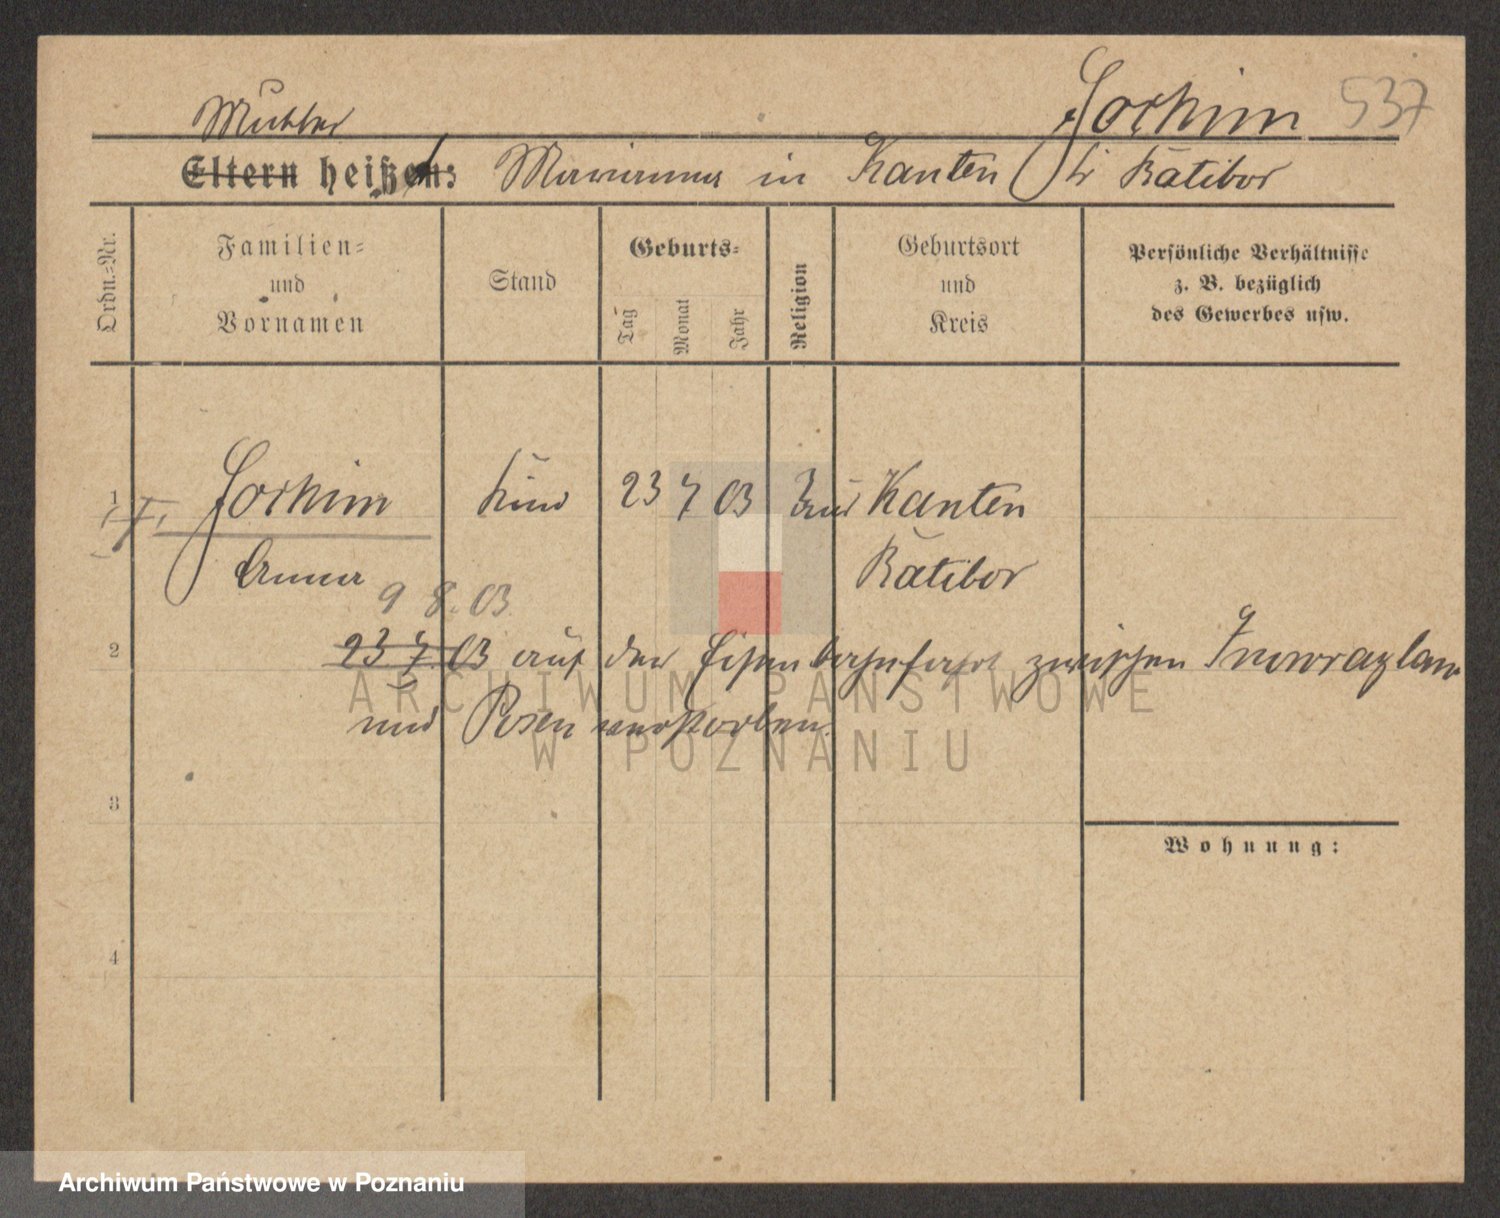 Jochim 537
Mutter
Eltern heißen: Marianna in Kanten Kr Ratibor
Ordn.=Nr.
Familien=
und
Vornamen
Stand
Geburts=
Tag
Monat
Jahr
Religion
Geburtsort
und
Kreis
Persönliche Verhältnisse
z. B. bezüglich
des Gewerbes usw.
1 Jochim Kind 23 7 03 Kanten
Anna Ratibor
9 8. 03
2 23 7 03 auf der Eisenbahnfahrt zwischen Inowrazlaw
und Posen verstorben.
3
Wohnung:
4
ARCHIWUM PAŃSTWOWE
W POZNANIU
Archiwum Państwowe w Poznaniu